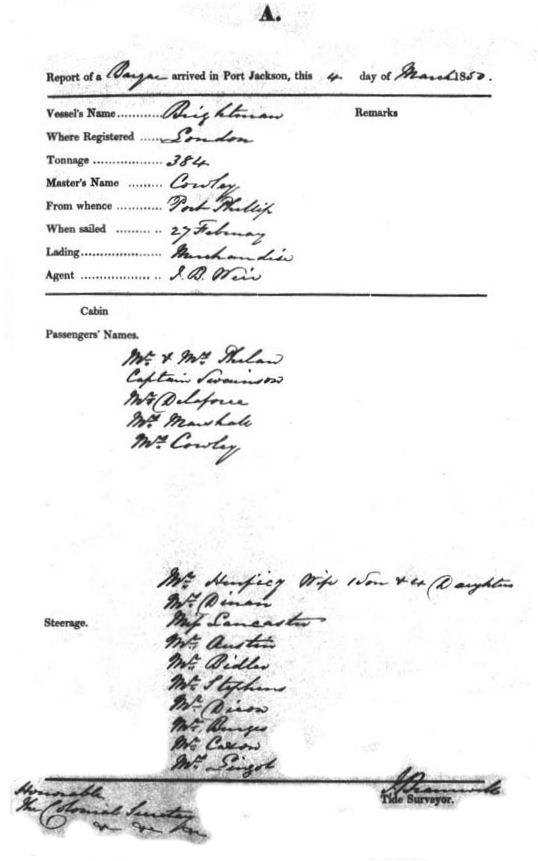 A.
Report of a Barque arrived in Port Jackson, this 4 day of March 1850.
Vessel's Name ............ Brightman
Remarks
Where Registered ...... London
Tonnage .................. 384
Master's Name ......... Cowley
From whence ............ Port Phillip
When sailed ......... .. 27 February
Lading..................... Merchandise
Agent .................. .. J. B. Weir
Cabin
Passengers' Names.
Mr. & Mrs. Phelan
Captain Swainson
Delaforce
Mrs. Marshall
Mrs. Cowley
Mr. Wife 1 Son & 4 Daughters
Mr. Dinan
Steerage.
Miss Lancaster
Mr. Austin
Mr. Bidler
Mr. Stephens
Mr. Dixon
Mr. Burges
Mr.
Mr.
Honorable
The Colonial Secretary
&c &c &c
Tide Surveyor.